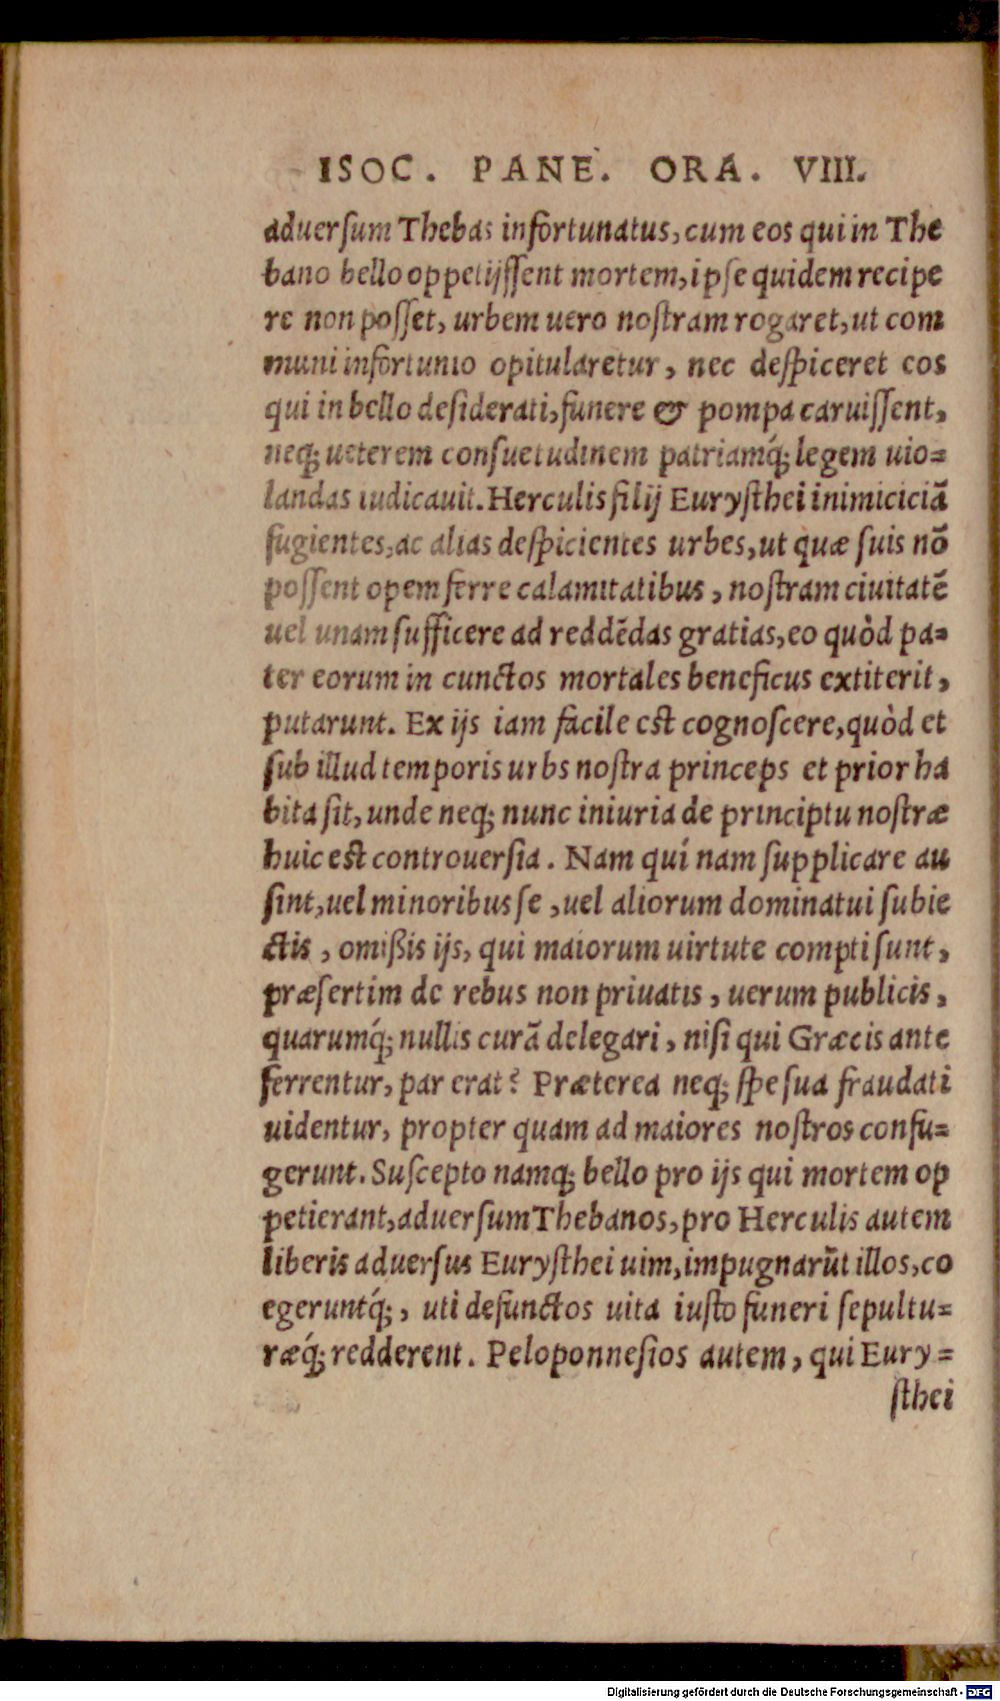 ISOC. PANE. ORA. VIII.
aduersum Thebas infortunatus, cum eos qui in The
bano bello oppetijssent mortem, ipse quidem recipe
re non posset, urbem uero nostram rogaret, ut com
muni infortunio opitularetur, nec despiceret eos
qui in bello desiderati, funere & pompa caruissent,
neq; ueterem consuetudinem patriamq́; legem uio=
landas iudicauit. Herculis filij Eurysthei inimiciciā
fugientes, ac alias despicientes urbes, ut quæ suis nō
possent opem ferre calamitatibus, nostram ciuitatē
uel unam sufficere ad reddēdas gratias, eo quòd pa=
ter eorum in cunctos mortales beneficus extiterit,
putarunt. Ex ijs iam facile est cognoscere, quòd et
sub illud temporis urbs nostra princeps et prior ha
bita sit, unde neq; nunc iniuria de principtu nostræ
huic est controuersia. Nam quí nam supplicare au
sint, uel minoribus se, uel aliorum dominatui subie
ctis, omißis ijs, qui maiorum uirtute compti sunt,
præsertim de rebus non priuatis, uerum publicis,
quarumq́; nullis curā delegari, nisi qui Græcis ante
ferrentur, par erat? Præterea neq; spe sua fraudati
uidentur, propter quam ad maiores nostros confu=
gerunt. Suscepto namq; bello pro ijs qui mortem op
petierant, aduersum Thebanos, pro Herculis autem
liberis aduersus Eurysthei uim, impugnarūt illos, co
egeruntq́;, uti defunctos uita iusto funeri sepultu=
ræq́; redderent. Peloponnesios autem, qui Eury=
sthei
Digitalisierung gefördert durch die Deutsche Forschungsgemeinschaft - DFG